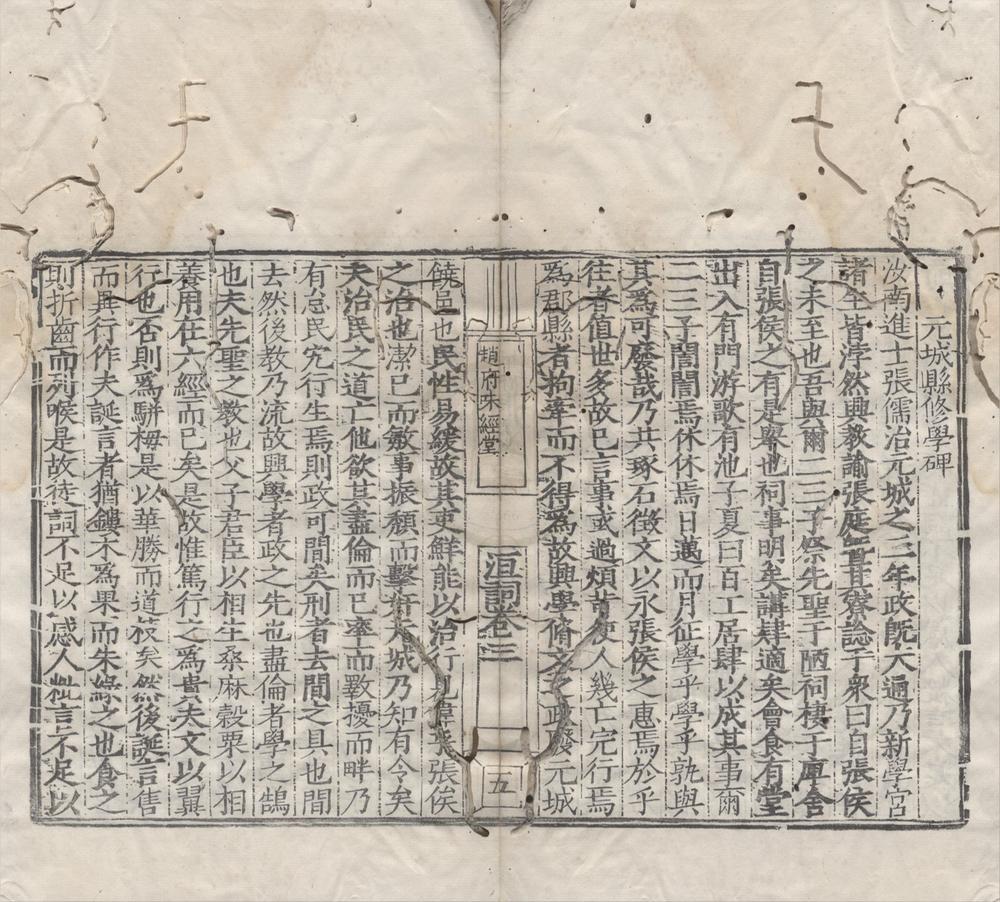 元城縣修學碑
汝南進士張儒冶元城之二年政旣大通乃新學宮
諸生皆浡然興教諭張庭暨其寮諗于衆曰自張侯
之未至也吾與爾二三子祭先聖于陋祠棲于庳舍
自張侯之有是舉也祠事明矣講肄適矣會食有堂
出入有門游歌有池子夏曰百工居肆以成其事爾
二三子誾誾焉休休焉日邁而月征學乎學乎孰與
其爲可廢哉乃共琢石徵文以永張侯之惠焉於乎
往者值世多故已言事或過煩苛使人幾亡完行焉
爲郡縣者拘牽而不得爲故興學脩文之政廢元城
趙府味經堂
洹詞卷三
五
饒邑也民性易緩故其吏鮮能以治行見偉哉張侯
之治也潔已而敏事振頽而擊奸元城乃知有令矣
夫治民之道亡他欲其盡倫而已率而斁擾而畔乃
有忘民宄行生焉則政可間矣刑者去間之具也間
去然後教乃流故興學者政之先也盡倫者學之鵠
也夫先聖之教也父子君臣以相生桑麻穀粟以相
養用在六經而已矣是故惟篤行之爲貴夫文以翼
行也否則爲駢栂是以華勝而道枝矣然後誕言售
而異行作夫誕言者猶鏤木爲果而朱綠之也食之
則折齒而列喉是故徒詞不足以感人粃言不足以